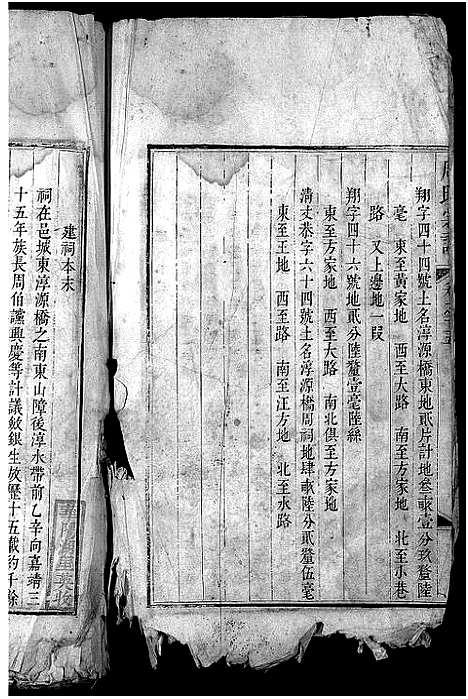 翔字四十四號土名淳源橋東地貳片計地叁畝壹分玖釐陸
毫 東至黃家地 西至大路 南至方家地 北至小巷
路 又上邊地一段
翔字四十六號地貳分陸釐壹毫陸絲
東至方家地 西至大路 南北俱至方家地
清丈恭字六十四號土名淳源橋周祠地肆畝陸分貳釐伍毫
東至王地 西至路 南至江方地 北至水路
建祠本末
祠在邑城東淳源橋之南東山障後淳水帶前乙辛向嘉靖三
十五年族長周伯讜興慶等計議斂銀生放歷十五載約千餘